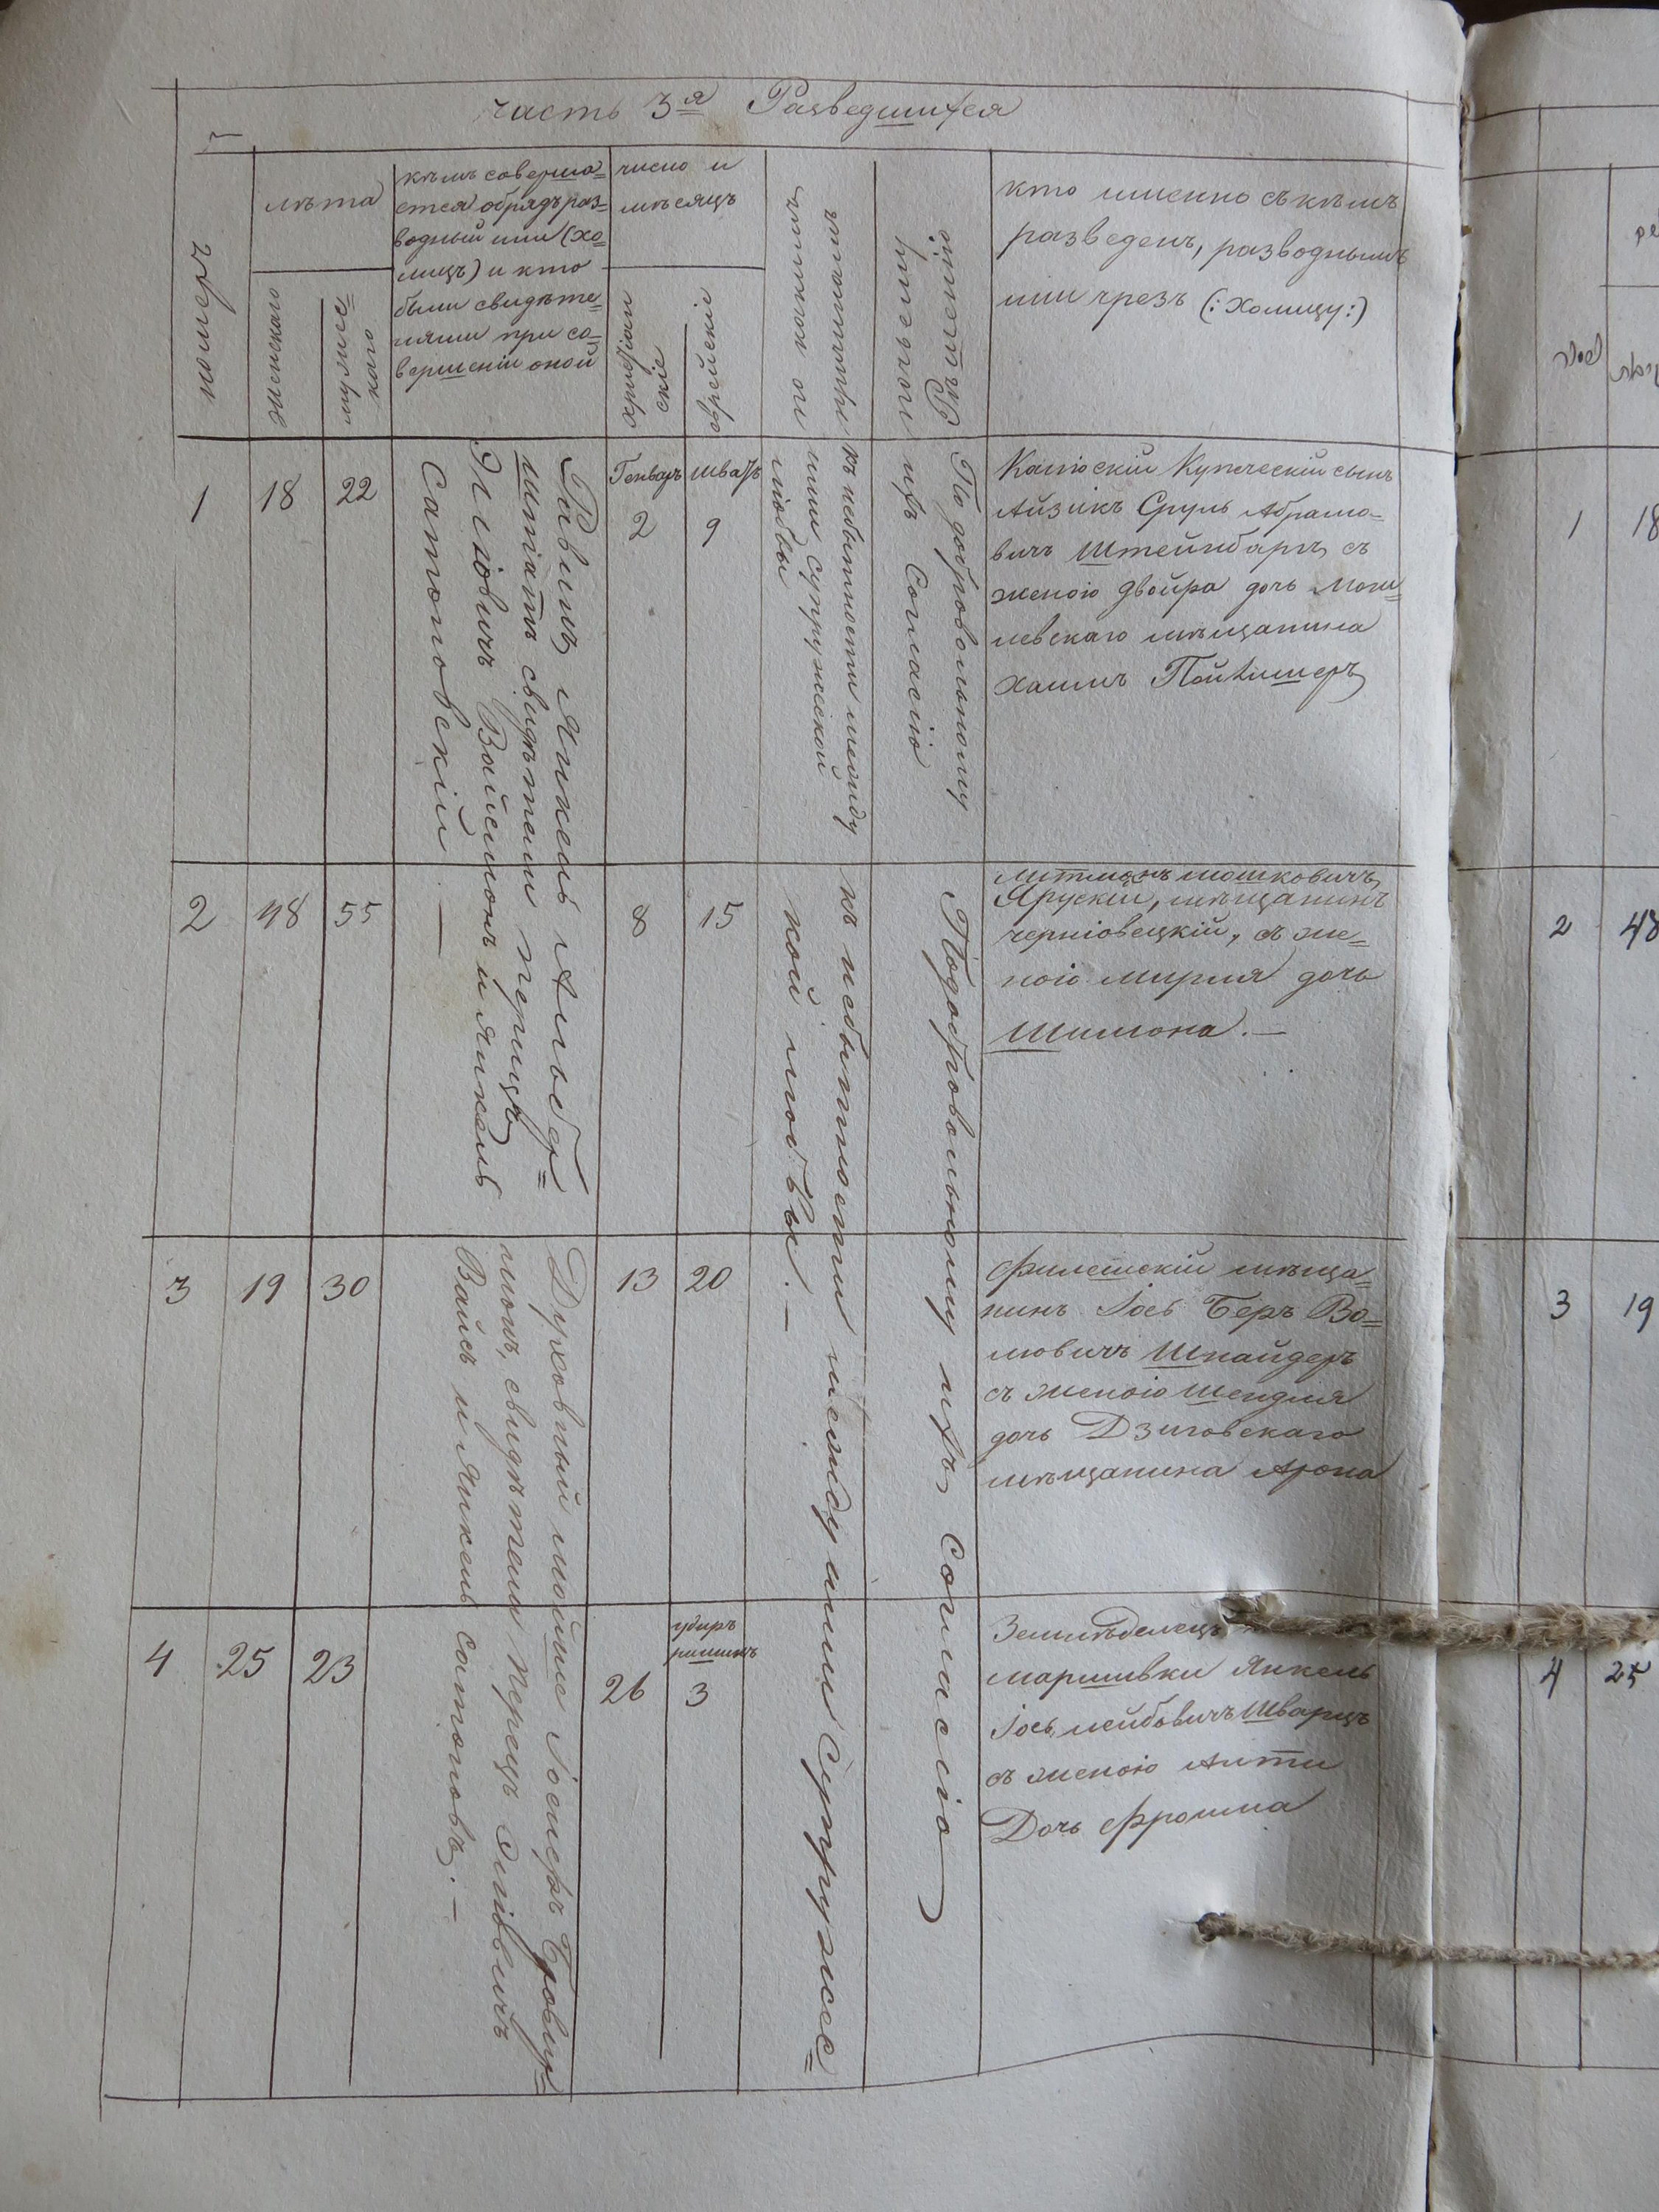 часть 3я Разведшихся
номеръ
лѣта
женскаго
мужес=
каго
кѣмъ соверша=
ется обрядъ раз=
водный или (хо=
лицъ) и кто
были свидѣте=
лями при со=
вершеніи оной
число и
мѣсяцъ
христіан
скіе
еврейскіе
по
кто именно съ кѣмъ
разведенъ, разводнымъ
или чрезъ (: холицу :)
1
18
22
Равинъ Янкель Альбер=
штатъ свидѣтели перицъ
Эліовичъ Вайсмонъ и Янкель
Сатановскій. —
Генварь
2
шватъ
9
къ небытности между
ними супружеской
любви
По добровольному
ихъ Согласію
Купеческій сынъ
Айзикъ Сруль Абрамо=
вичъ Штейнбаргъ съ
женою Двойра дочь Моги=
левскаго мѣщанина
Хаимъ
2
48
55
8
15
къ небытности между ими Супружес=
кой любви. —
Подобровольному ихъ Согласію
мошковичъ
Яруский, мѣщанинъ
черніовецкій, съ же=
ною Мирля дочь
Шимона. —
3
19
30
Духовный мойше Іосиеръ Бровер=
монъ, свидѣтели Перецъ Эліовичъ
Вайсъ и Янкель сатановъ. —
13
20
мѣща=
нинъ Іось Беръ Во=
люовичъ Шнайдеръ
съ женою Шендля
дочь Дзиговскаго
мѣщанина Арона
4
25
23
26
удиръ
ришинъ
3
Земледѣлецъ
маршивки Янкель
Іось лейбовичъ Шварцъ
съ женою Алти
Дочь Фроима
1
18
2
48
3
19
4
25